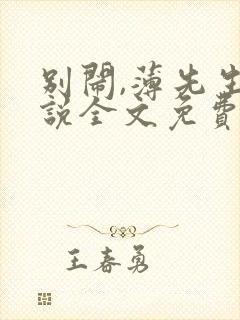 别闹,薄先生
說全文免費
王春勇